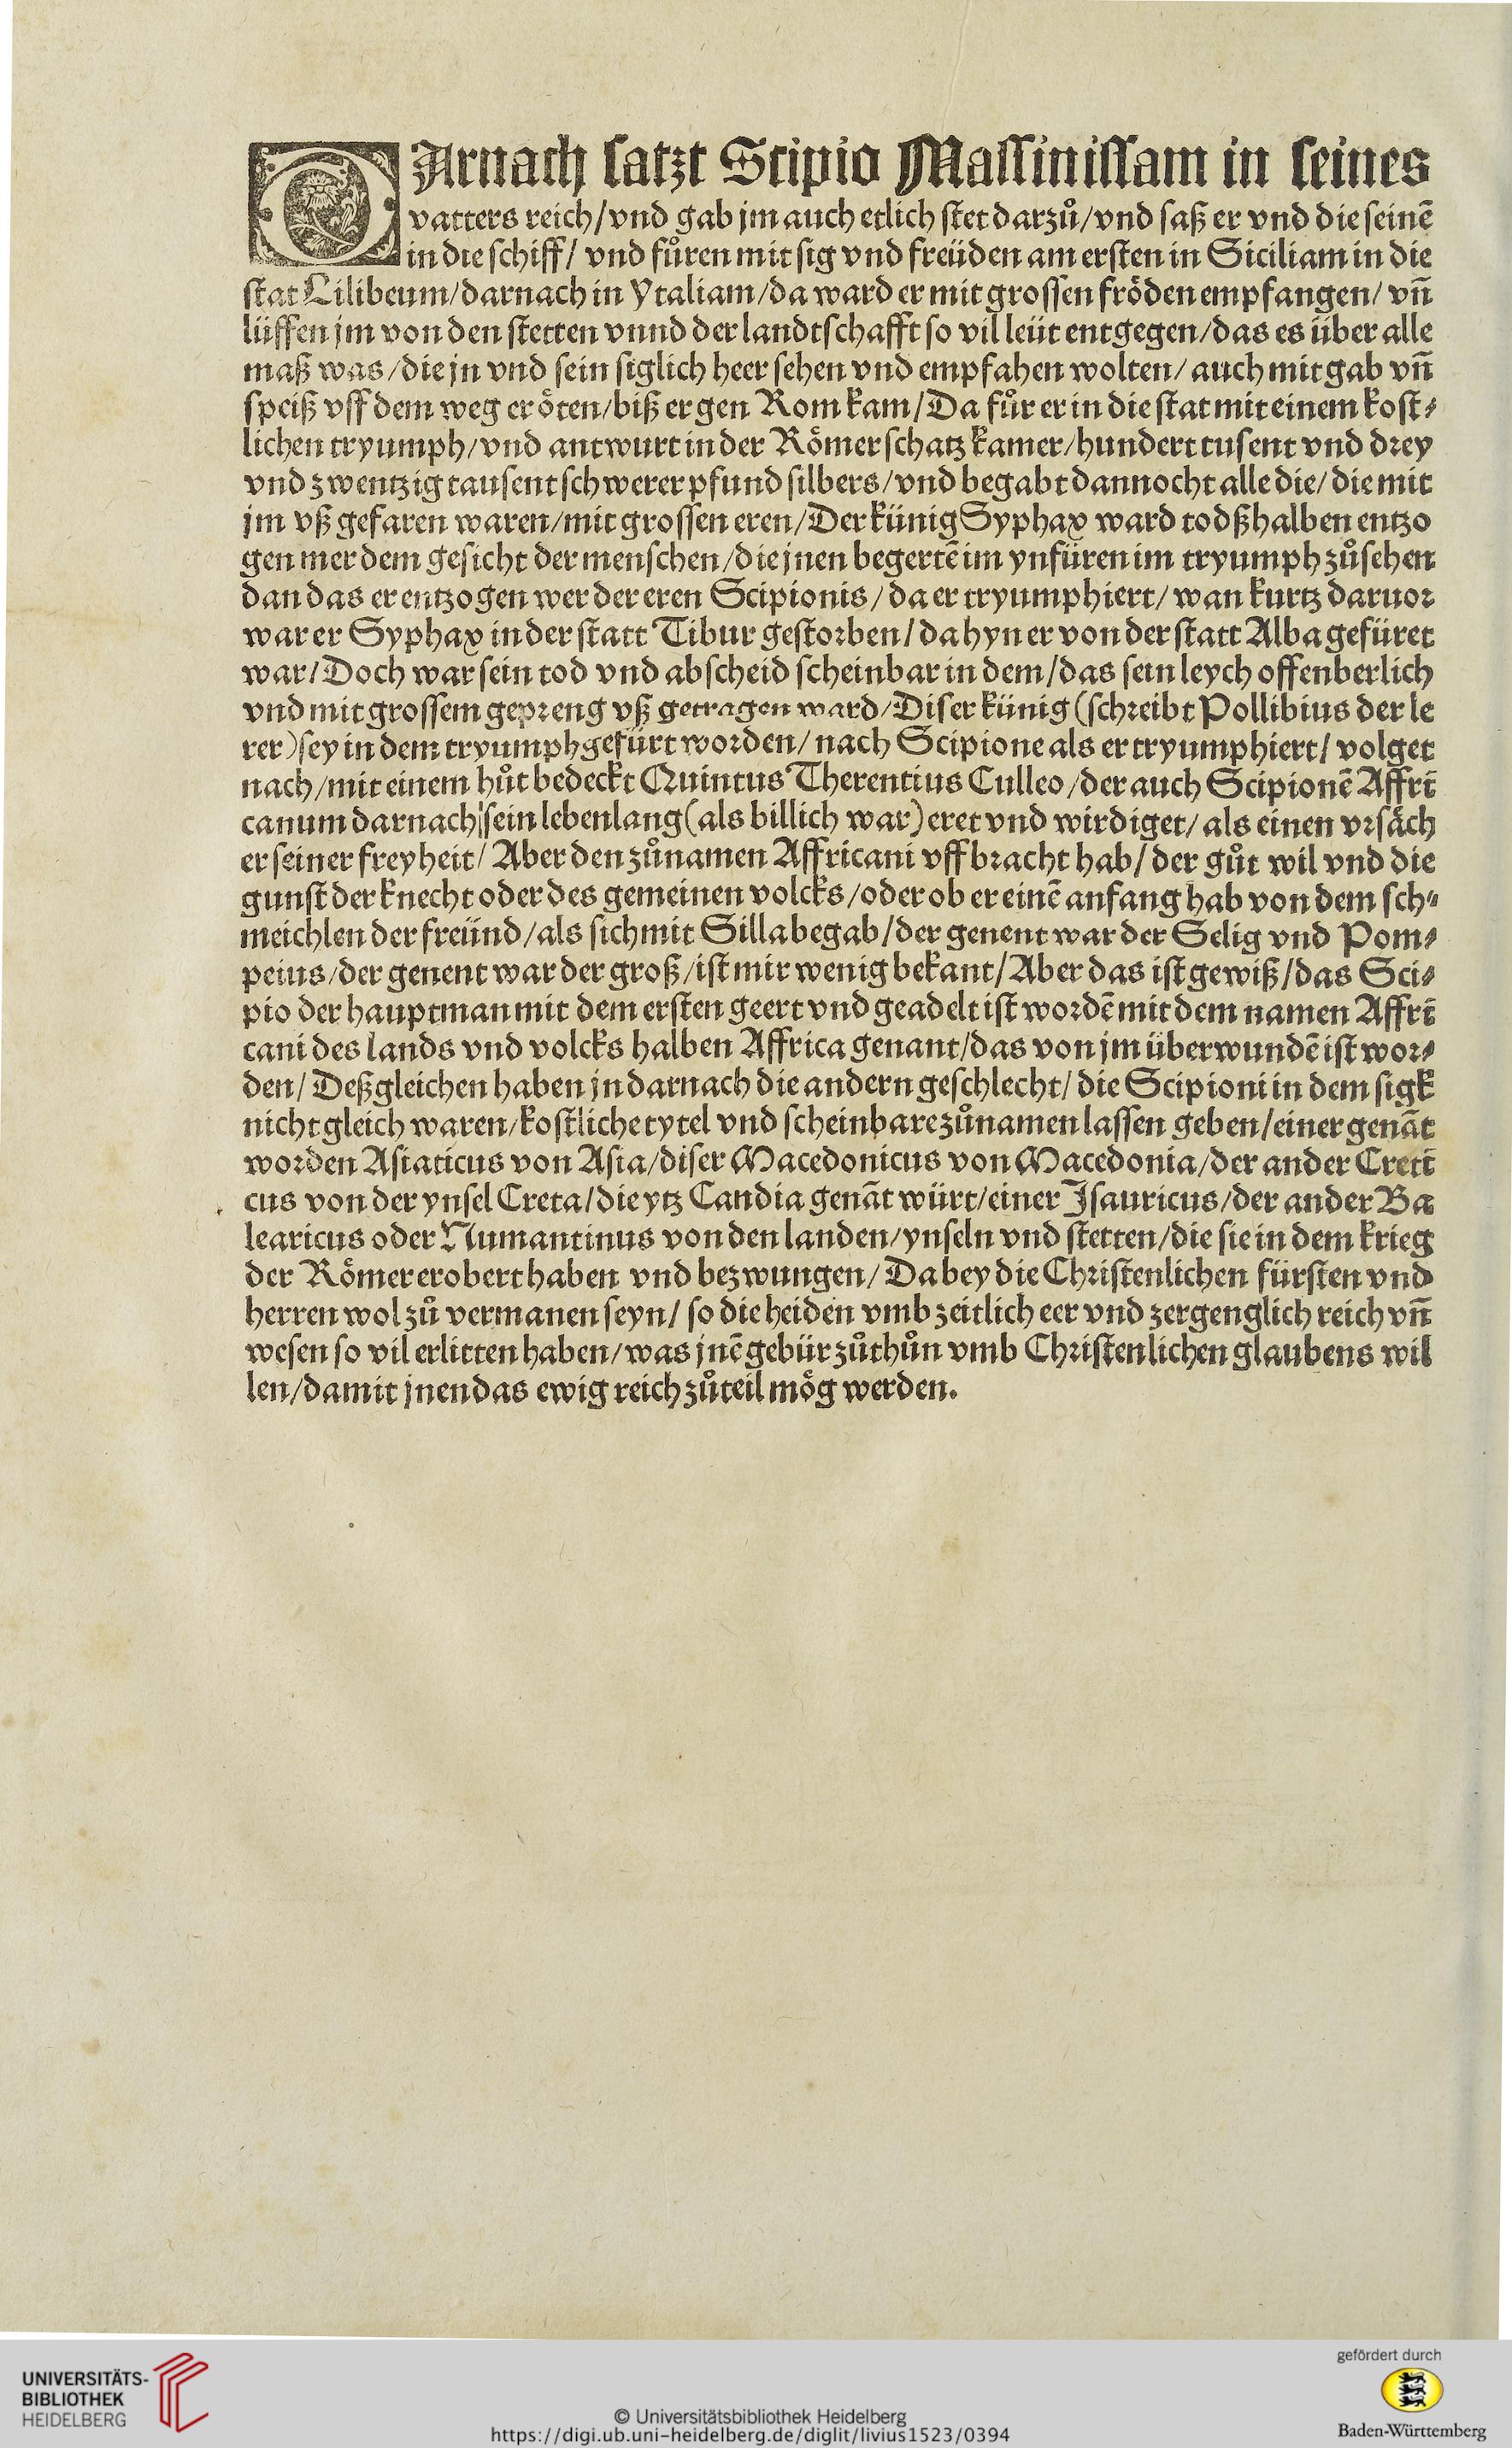 DArnach satzt Scipio Massinissam in seines
vatters reich/vnd gab jm auch etlich stet darzů/vnd saß er vnd die seinē
in die schiff/ vnd fůren mit sig vnd freüden am ersten in Siciliam in die
stat Lilibeum/darnach in Ytaliam/da ward er mit grossen fröden empfangen/ vn̄
lüffen jm von den stetten vnnd der landtschafft so vil leüt entgegen/das es über alle
maß was/die jn vnd sein siglich heer sehen vnd empfahen wolten/ auch mit gab vn̄
speiß vff dem weg eröten/biß er gen Rom kam/Da fůr er in die stat mit einem kost⸗
lichen tryumph/vnd antwurt in der Römer schatz kamer/hundert tusent vnd drey
vnd zwentzig tausent schwerer pfund silbers/vnd begabt dannocht alle die/ die mit
jm vß gefaren waren/mit grossen eren/Der künig Syphax ward todßhalben entzo
gen mer dem gesicht der menschen/die jnen begertē im ynfüren im tryumph zůsehen
dan das er entzogen wer der eren Scipionis/da er tryumphiert/ wan kurtz daruor
war er Syphax in der statt Tibur gestorben/da hyn er von der statt Alba gefüret
war/Doch war sein tod vnd abscheid scheinbar in dem/das sein leych offenberlich
vnd mit grossem gepreng vß getragen ward/Diser künig (schreibt Pollibius der le
rer)sey in dem tryumph gefürt worden/ nach Scipione als er tryumphiert/ volget
nach/mit einem hůt bedeckt Quintus Therentius Culleo/der auch Scipionē Affri
canum darnach sein lebenlang(als billich war)eret vnd wirdiget/ als einen vrsäch
er seiner freyheit/ Aber den zůnamen Affricani vff bracht hab/ der gůt wil vnd die
gunst der knecht oder des gemeinen volcks/oder ob er einē anfang hab von dem sch⸗
meichlen der freünd/als sich mit Silla begab/der genent war der Selig vnd Pom⸗
peius/der genent war der groß/ist mir wenig bekant/Aber das ist gewiß/das Sci⸗
pio der hauptman mit dem ersten geert vnd geadelt ist wordē mit dem namen Affri
cani des lands vnd volcks halben Affrica genant/das von jm überwundē ist wor⸗
den/ Deßgleichen haben jn darnach die andern geschlecht/ die Scipioni in dem sigk
nicht gleich waren/kostliche tytel vnd scheinbare zůnamen lassen geben/einer genāt
worden Asiaticus von Asia/diser Macedonicus von Macedonia/der ander Creti
cus von der ynsel Creta/die ytz Candia genāt würt/einer Isauricus/der ander Ba
learicus oder Numantinus von den landen/ynseln vnd stetten/die sie in dem krieg
der Römer erobert haben vnd bezwungen/ Da bey die Christenlichen fürsten vnd
herren wol zů vermanen seyn/ so die heiden vmb zeitlich eer vnd zergenglich reich vn̄
wesen so vil erlitten haben/was jnē gebür zůthůn vmb Christenlichen glaubens wil
len/damit jnen das ewig reich zůteil mög werden.
UNIVERSITÄTS-
BIBLIOTHEK
HEIDELBERG
© Universitätsbibliothek Heidelberg
https://digi.ub.uni-heidelberg.de/diglit/livius1523/0394
gefördert durch
Baden-Württemberg